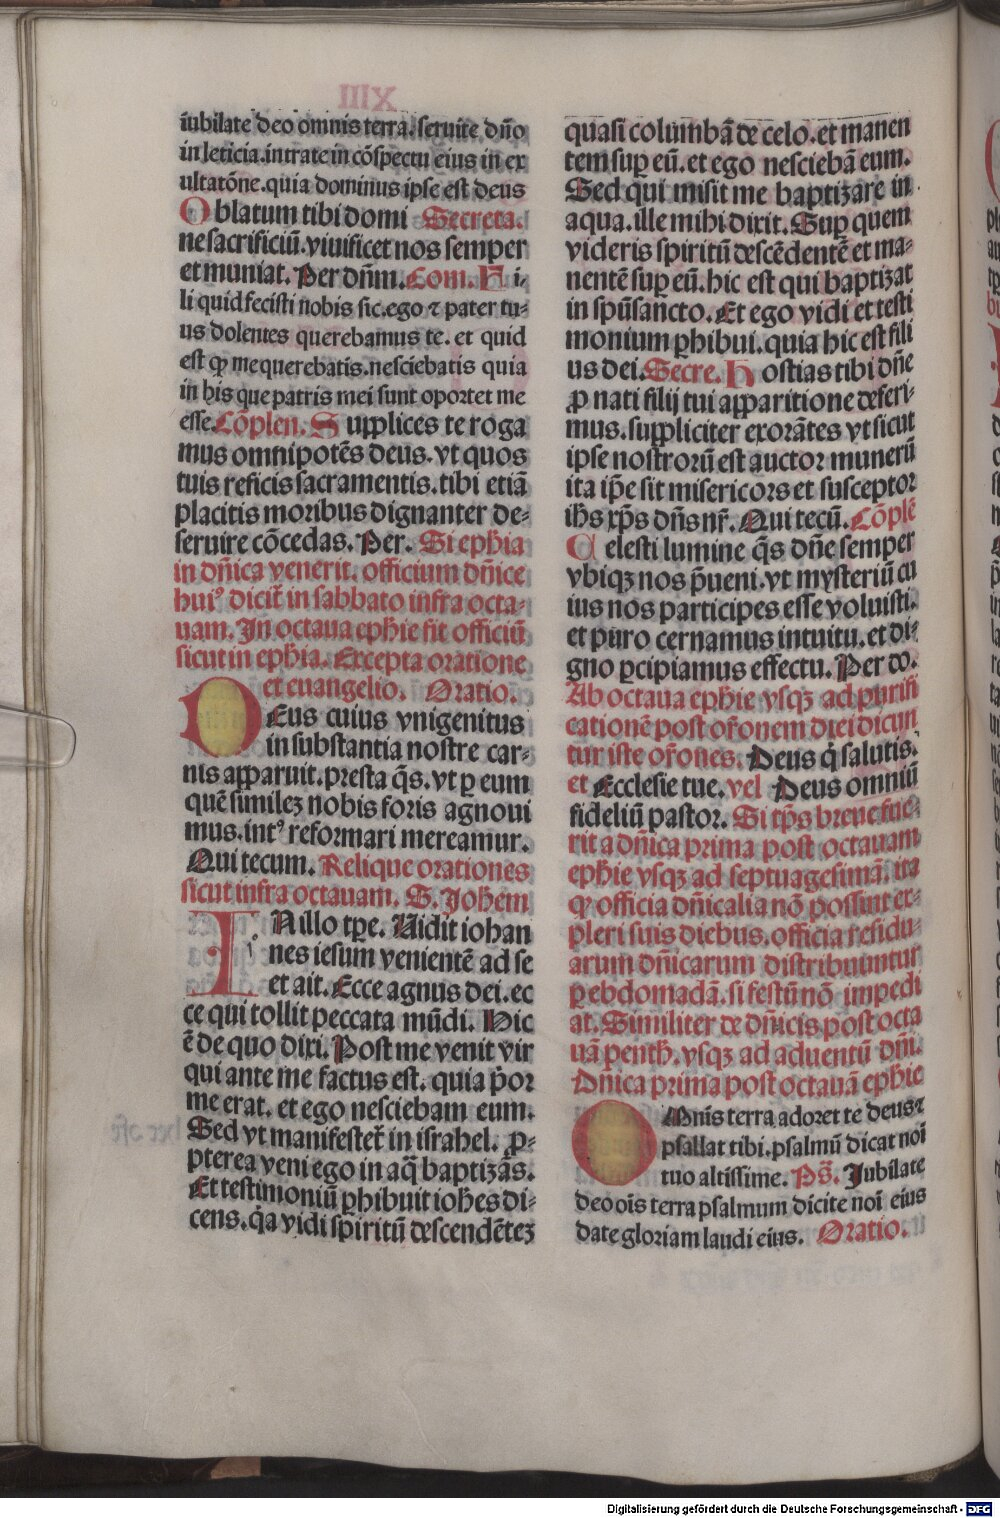 iubilate deo omnis terra. seruite dño
in leticia. intrate in cõspectu eius in ex
ultatõne. quia dominus ipse est deus
Oblatum tibi domi Secreta.
ne sacrificiũ. viuificet nos semper
et muniat. Per dñm. Com. Fi-
li quid fecisti nobis sic. ego ⁊ pater tu-
us dolentes querebamus te. et quid
est ꝙ me querebatis. nesciebatis quia
in his que patris mei sunt oportet me
esse. Cõplen. Supplices te roga
mus omnipotẽs deus. vt quos
tuis reficis sacramentis. tibi etiã
placitis moribus dignanter de-
seruire cõcedas. Per. Si ephia
in dñica venerit. officium dñice
huiꝰ dicit̃ in sabbato infra octa-
uam. In octaua ephie fit officiũ
sicut in ephia. Excepta oratione
et euangelio. Oratio.
DEus cuius vnigenitus
in substantia nostre car-
nis apparuit. presta q̃s. vt ꝑ eum
quẽ similez nobis foris agnoui
mus. intꝰ reformari mereamur.
Qui tecum. Relique orationes
sicut infra octauam. S. Johẽm
IN illo tꝑe. Uidit iohan
nes iesum venientẽ ad se
et ait. Ecce agnus dei. ec
ce qui tollit peccata mũdi. Hic
ẽ de quo dixi. Post me venit vir
qui ante me factus est. quia p̃or
me erat. et ego nesciebam eum.
Sed vt manifestet̃ in israhel. ꝓ-
pterea veni ego in aq̃ baptizãs.
Et testimoniũ ꝑhibuit iohẽs di-
cens. q̃a vidi spiritũ descendẽtez
quasi columbã de celo. et manen
tem suꝑ eũ. et ego nesciebã eum.
Sed qui misit me baptizare in
aqua. ille mihi dixit. Suꝑ quem
videris spiritũ descẽdentẽ et ma-
nentẽ suꝑ eũ. hic est qui baptizat
in spũsancto. Et ego vidi et testi
monium ꝑhibui. quia hic est fili
us dei. Secre. Hostias tibi dñe
ꝓ nati filij tui apparitione deferi-
mus. suppliciter exorãtes vt sicut
ipse nostrorũ est auctor munerũ
ita ip̃e sit misericors et susceptor
ihs xp̃s dñs nr̃. Qui tecũ. Cõplẽ
Celesti lumine q̃s dñe semper
vbiqꝫ nos p̃ueni. vt mysteriũ cu
ius nos participes esse voluisti.
et puro cernamus intuitu. et di-
gno ꝑcipiamus effectu. Per do.
Ab octaua ephie vsqꝫ ad purifi
cationẽ post or̃onem diei dicun
tur iste or̃ones. Deus q̃ salutis.
et Ecclesie tue. vel Deus omniũ
fideliũ pastor. Si tp̃s breue fue-
rit a dñica prima post octauam
ephie vsqꝫ ad septuagesimã. ita
ꝙ officia dñicalia nõ possint ex-
pleri suis diebus. officia residu-
arum dñicarum distribuuntur
ꝑ ebdomadã. si festũ nõ impedi
at. Similiter de dñicis post octa
uã penth. vsqꝫ ad aduentũ dñi.
Dñica prima post octauã ephie
OMnis terra adoret te deus ⁊
psallat tibi. psalmũ dicat noĩ
tuo altissime. Ps̃. Jubilate
deo oĩs terra psalmum dicite noĩ eius
date gloriam laudi eius. Oratio.
Digitalisierung gefördert durch die Deutsche Forschungsgemeinschaft - DFG